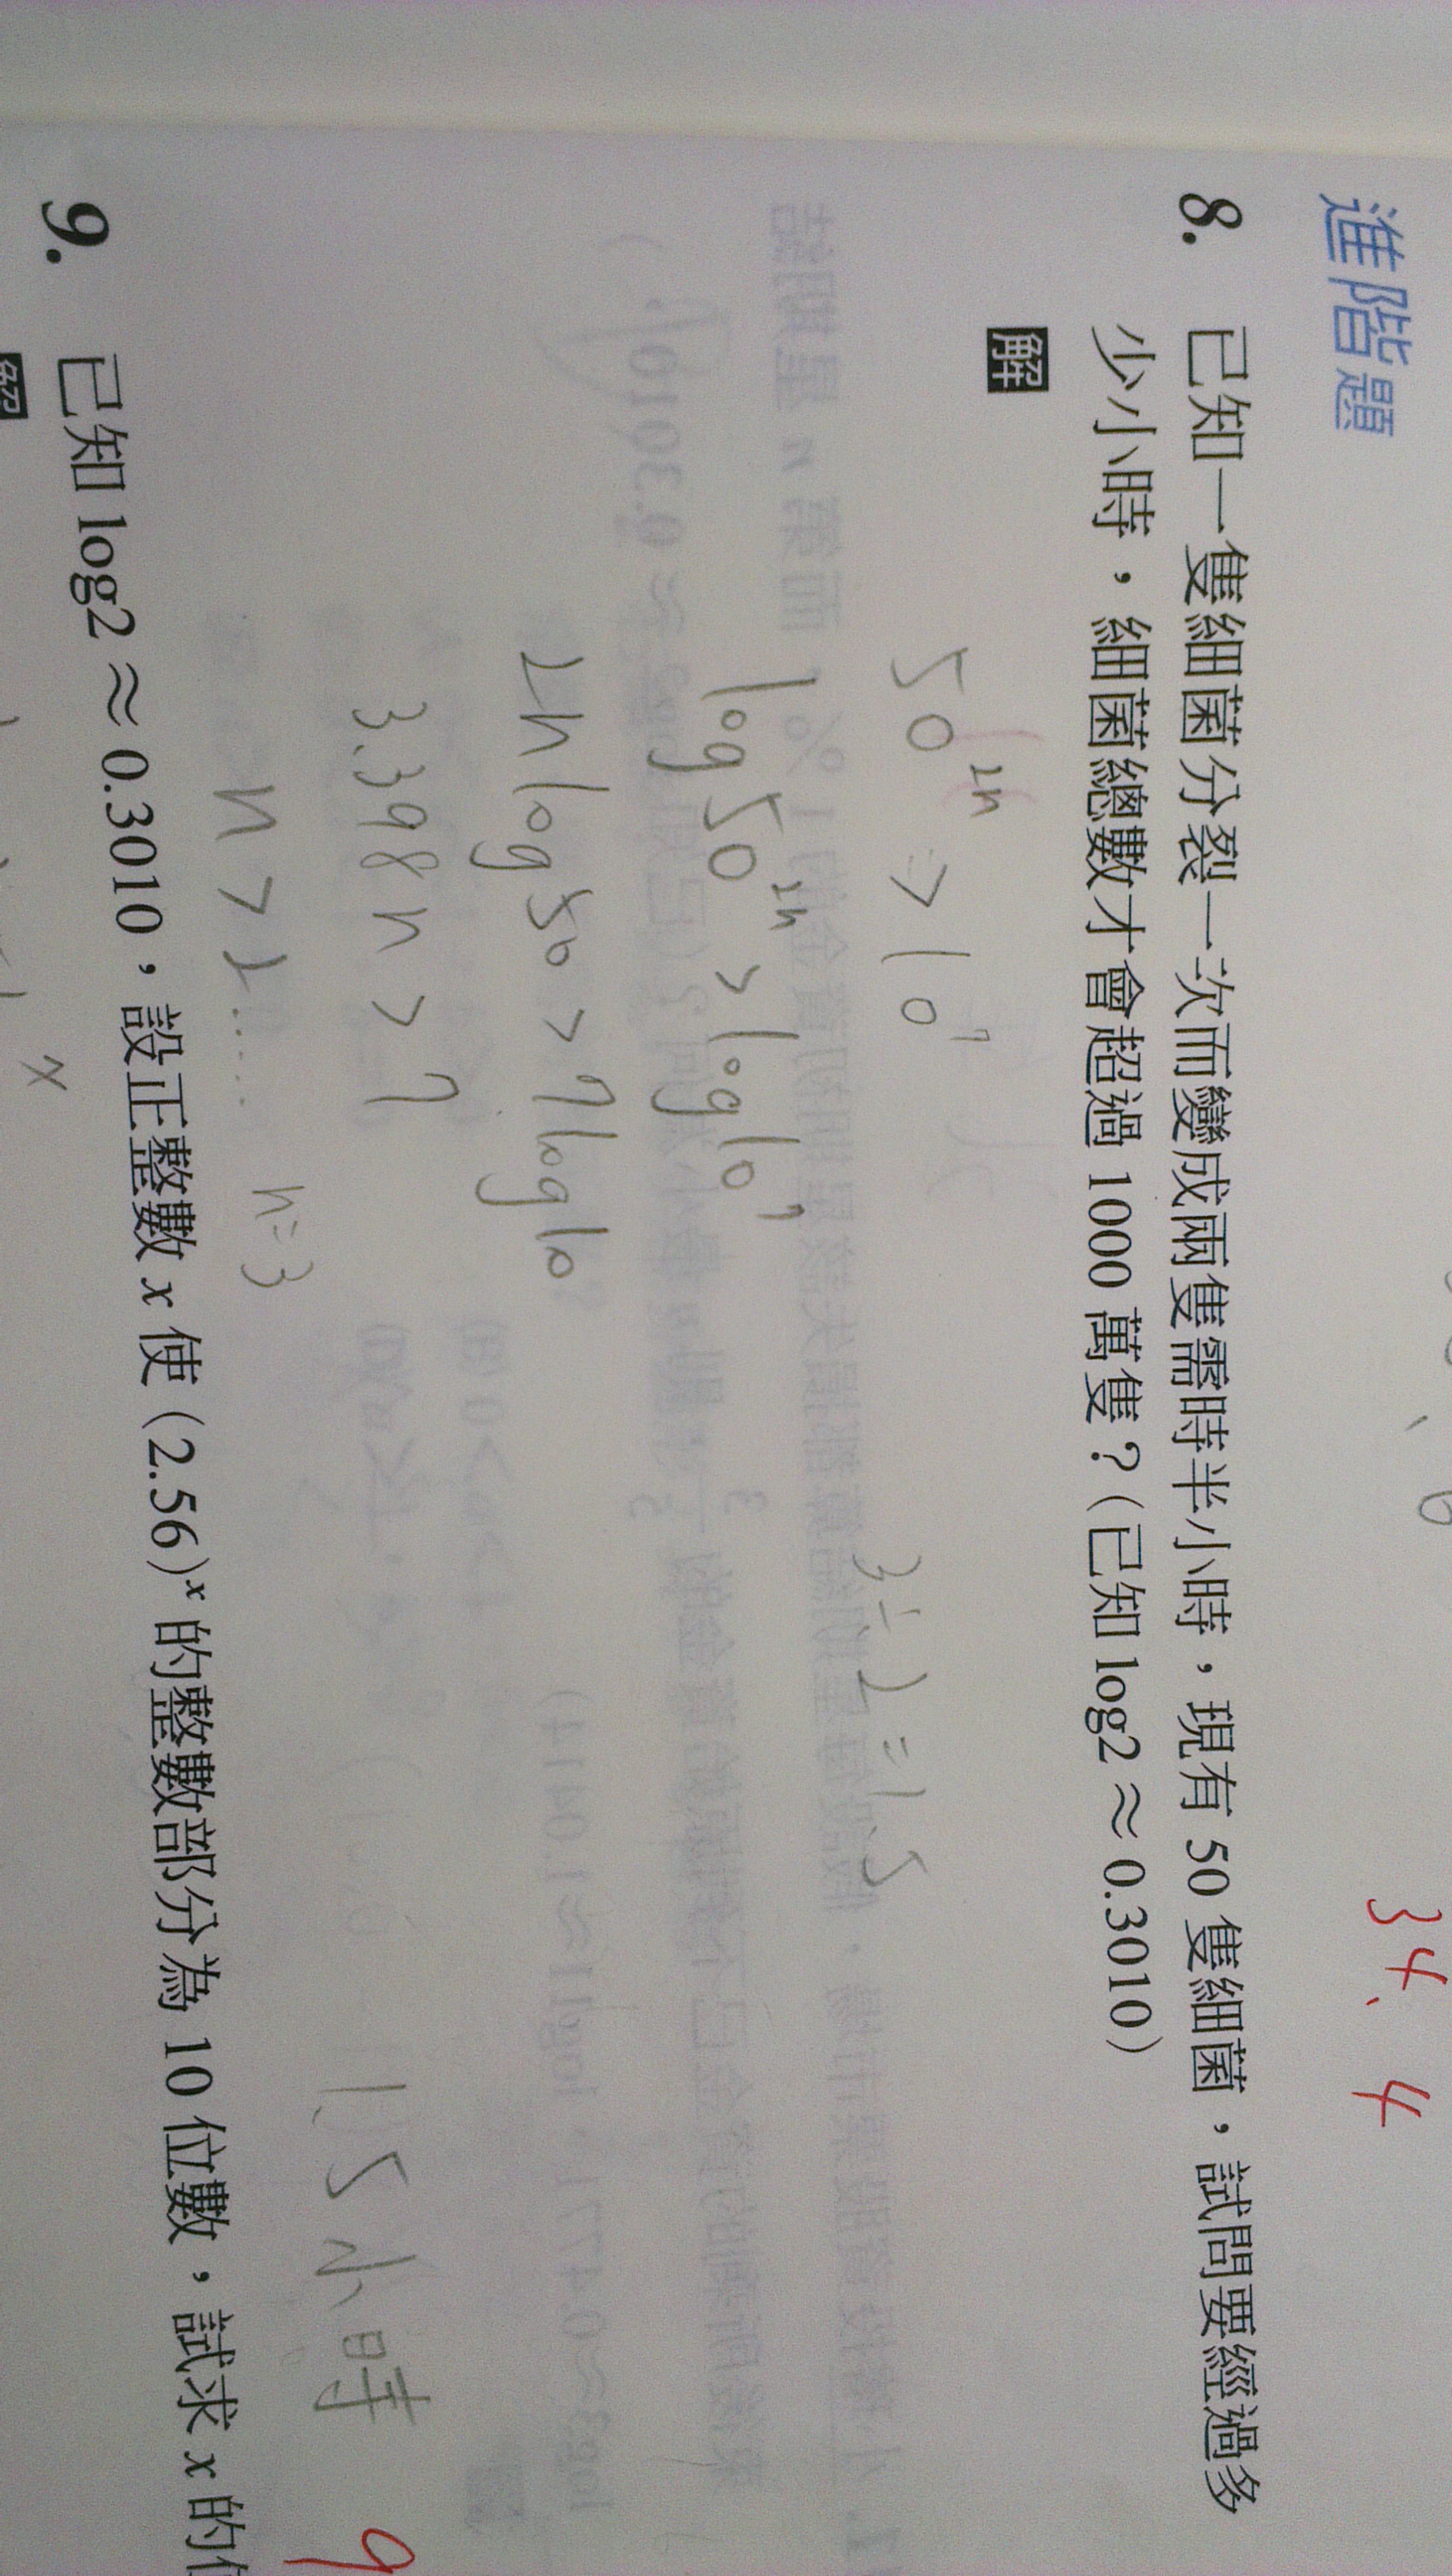 34、4
進階題
8. 已知一隻細菌分裂一次而變成兩隻需時半小時，現有 50 隻細菌，試問要經過多
少小時，細菌總數才會超過 1000 萬隻？(已知 log2 ≈ 0.3010)
解
50²ⁿ > 10⁷
3÷2=1.5
log50²ⁿ > log10⁷
2n log50 > 7log10
3.398n > 7
n > 2.....
n=3
1.5小時
9
9. 已知 log2 ≈ 0.3010，設正整數 x 使 (2.56)ˣ 的整數部分為 10 位數，試求 x 的
解
x